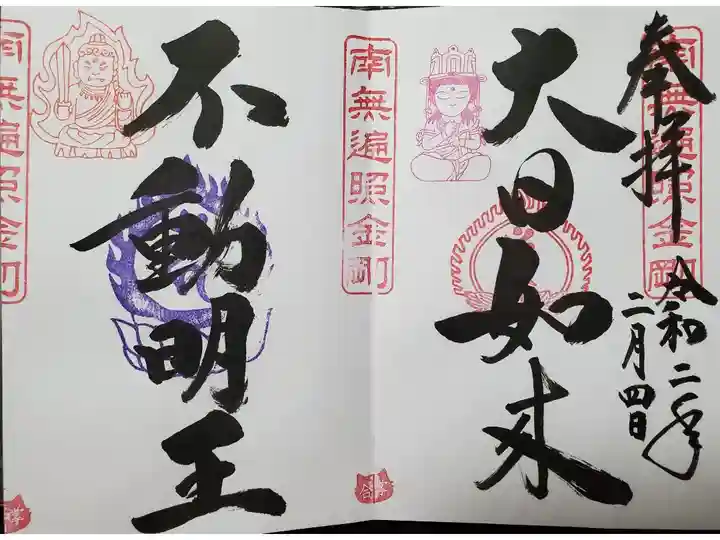 奉拝
令和二年
二月四日
南無遍照金剛
大日如来
南無遍照金剛
不動明王
南無遍照金剛